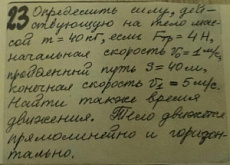 23 Определить силу, дей-
ствующую на тело мас-
сой m = 40 кг, если Fтр = 4 Н,
начальная скорость v₀ = 1 м/с,
пройденный путь S = 40 м,
конечная скорость v₁ = 5 м/с.
Найти также время
движения. Тело движется
прямолинейно и горизон-
тально.